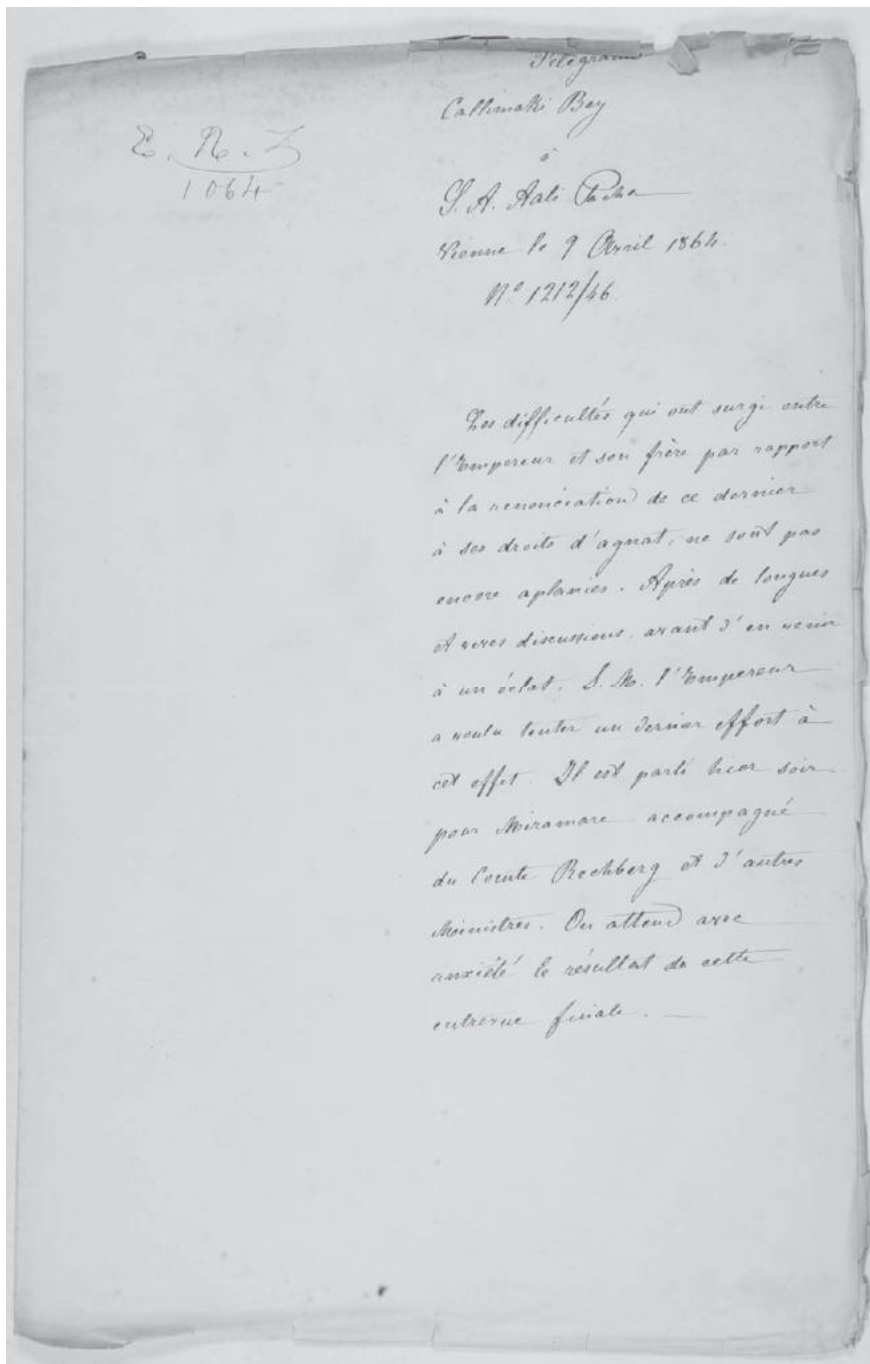 Télégramme
Callimaki Bey
à
S. A. Aali Pacha
Vienne le 9 Avril 1864.
Nº 1212/46.
E. R.
1064
Les difficultés qui ont surgi entre
l'Empereur et son frère par rapport
à la renonciation de ce dernier
à ses droits d'agnat, ne sont pas
encore aplanies. Après de longues
et vives discussions, avant d'en venir
à un éclat, S. M. l'Empereur
a voulu tenter un dernier effort à
cet effet. Il est parti hier soir
pour Miramare accompagné
du Comte Rechberg et d'autres
Ministres. On attend avec
anxiété le résultat de cette
entrevue finale. —